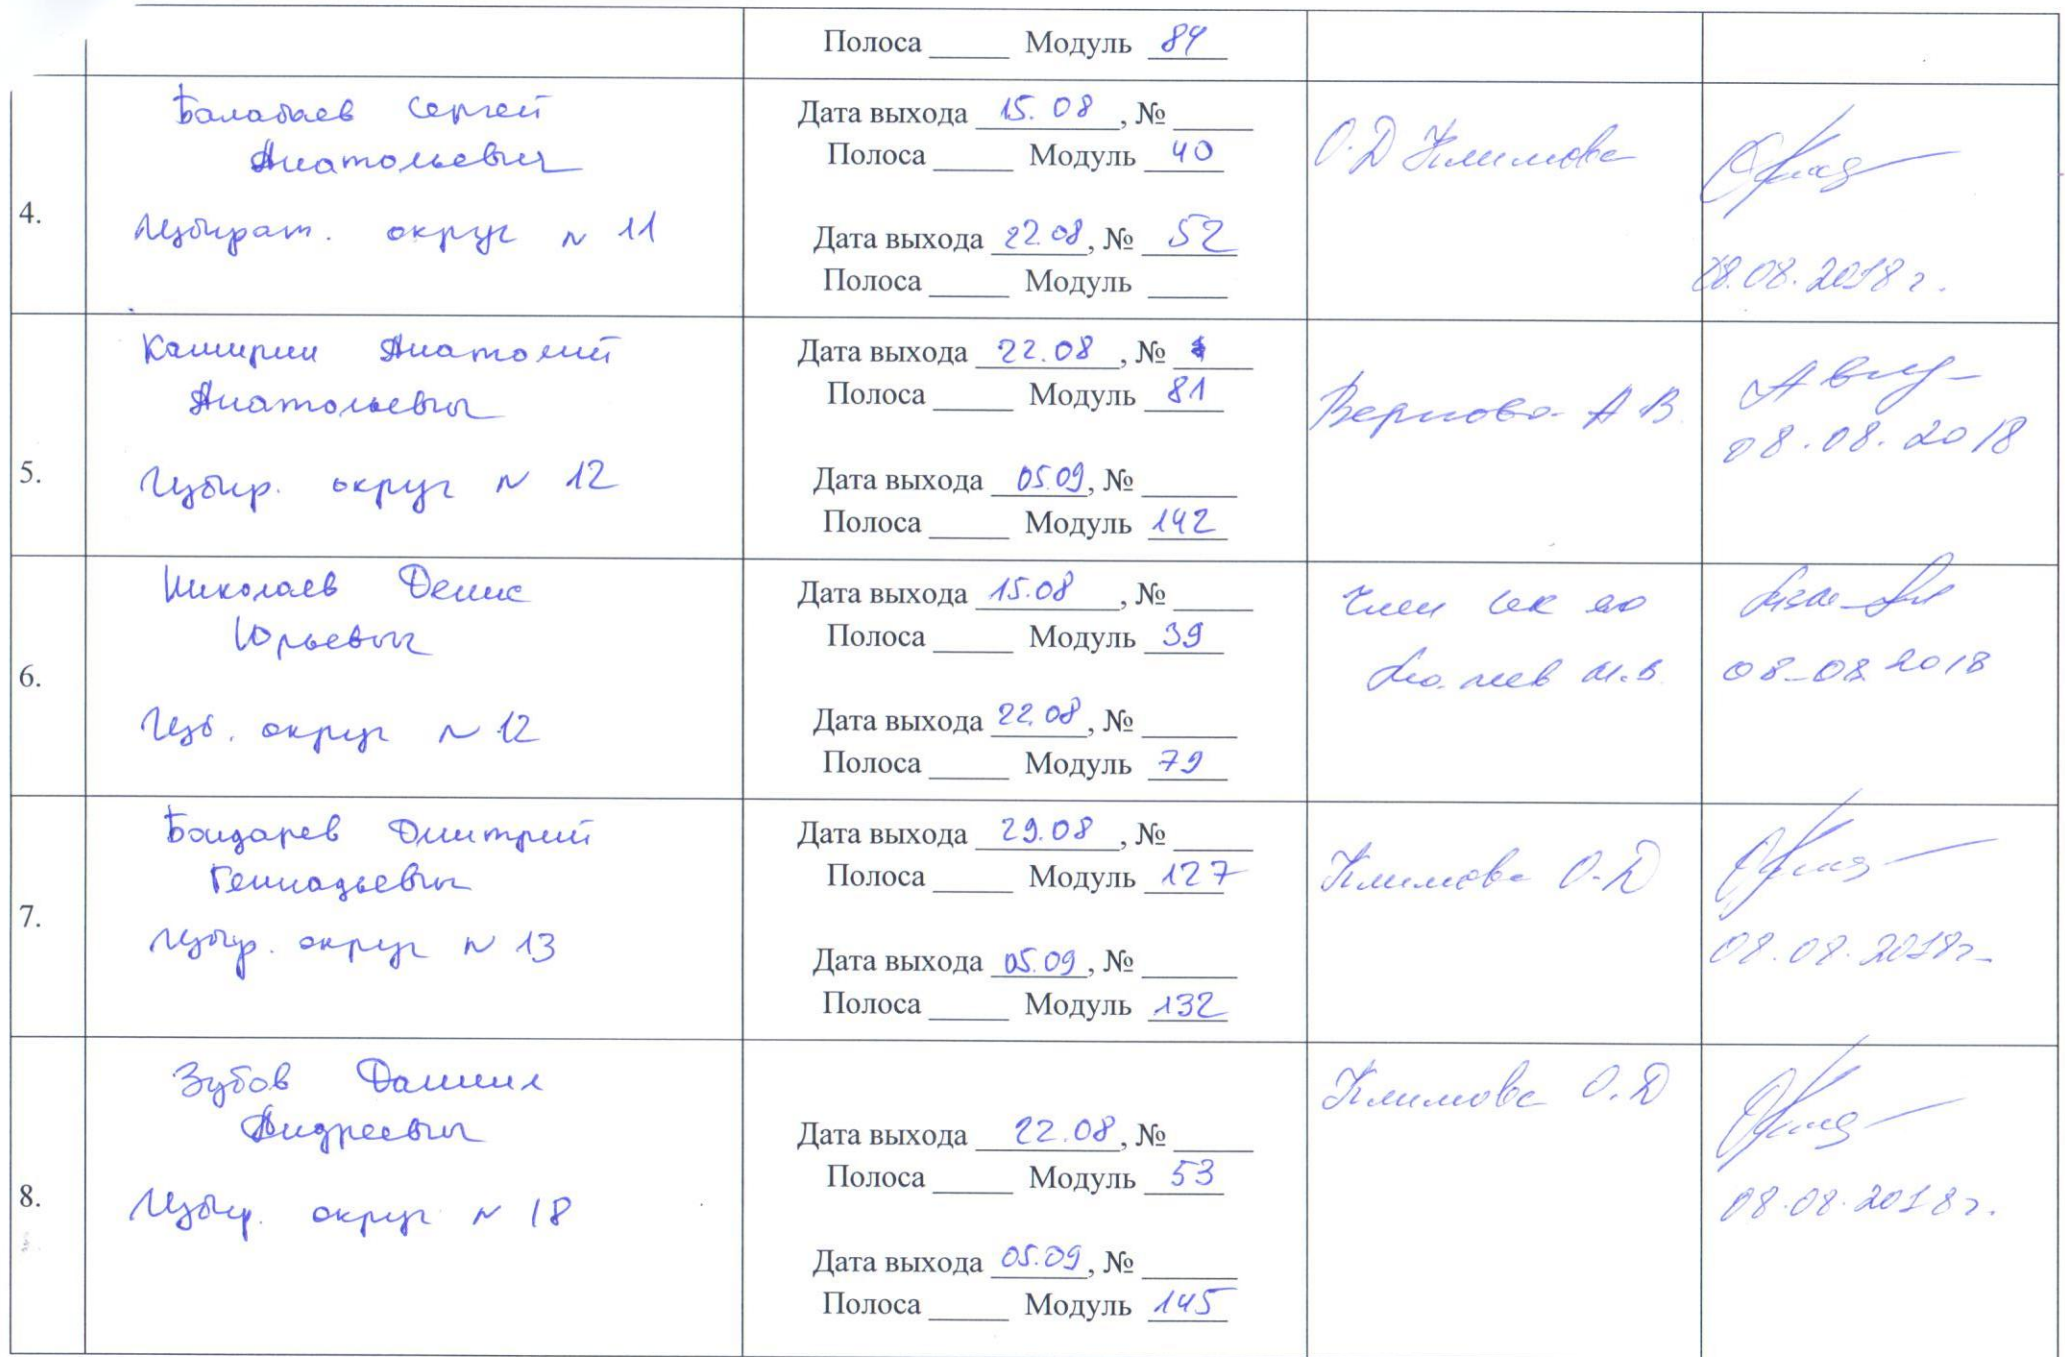 Полоса _____ Модуль 84
4.
Балабаев Сергей
Анатольевич
Избират. округ № 11
Дата выхода 15.08, № _____
Полоса _____ Модуль 40
Дата выхода 22.08, № 52
Полоса _____ Модуль _____
О.Д Климова
08.08.2018 г.
5.
Каширин Анатолий
Анатольевич
Избир. округ № 12
Дата выхода 22.08, №
Полоса _____ Модуль 81
Дата выхода 05.09, № _____
Полоса _____ Модуль 142
Вернова А В.
08.08.2018
6.
Николаев Денис
Юрьевич
Изб. округ № 12
Дата выхода 15.08, № _____
Полоса _____ Модуль 39
Дата выхода 22.08, № _____
Полоса _____ Модуль 79
Член
08-08 2018
7.
Бондарев Дмитрий
Геннадьевич
Избир. округ № 13
Дата выхода 29.08, № _____
Полоса _____ Модуль 127
Дата выхода 05.09, № _____
Полоса _____ Модуль 132
Климова О.Д
08.08.2018г.
8.
Зубов Даниил
Андреевич
Избир. округ № 18
Дата выхода 22.08, № _____
Полоса _____ Модуль 53
Дата выхода 05.09, № _____
Полоса _____ Модуль 145
Климова О.Д
08.08.2018г.